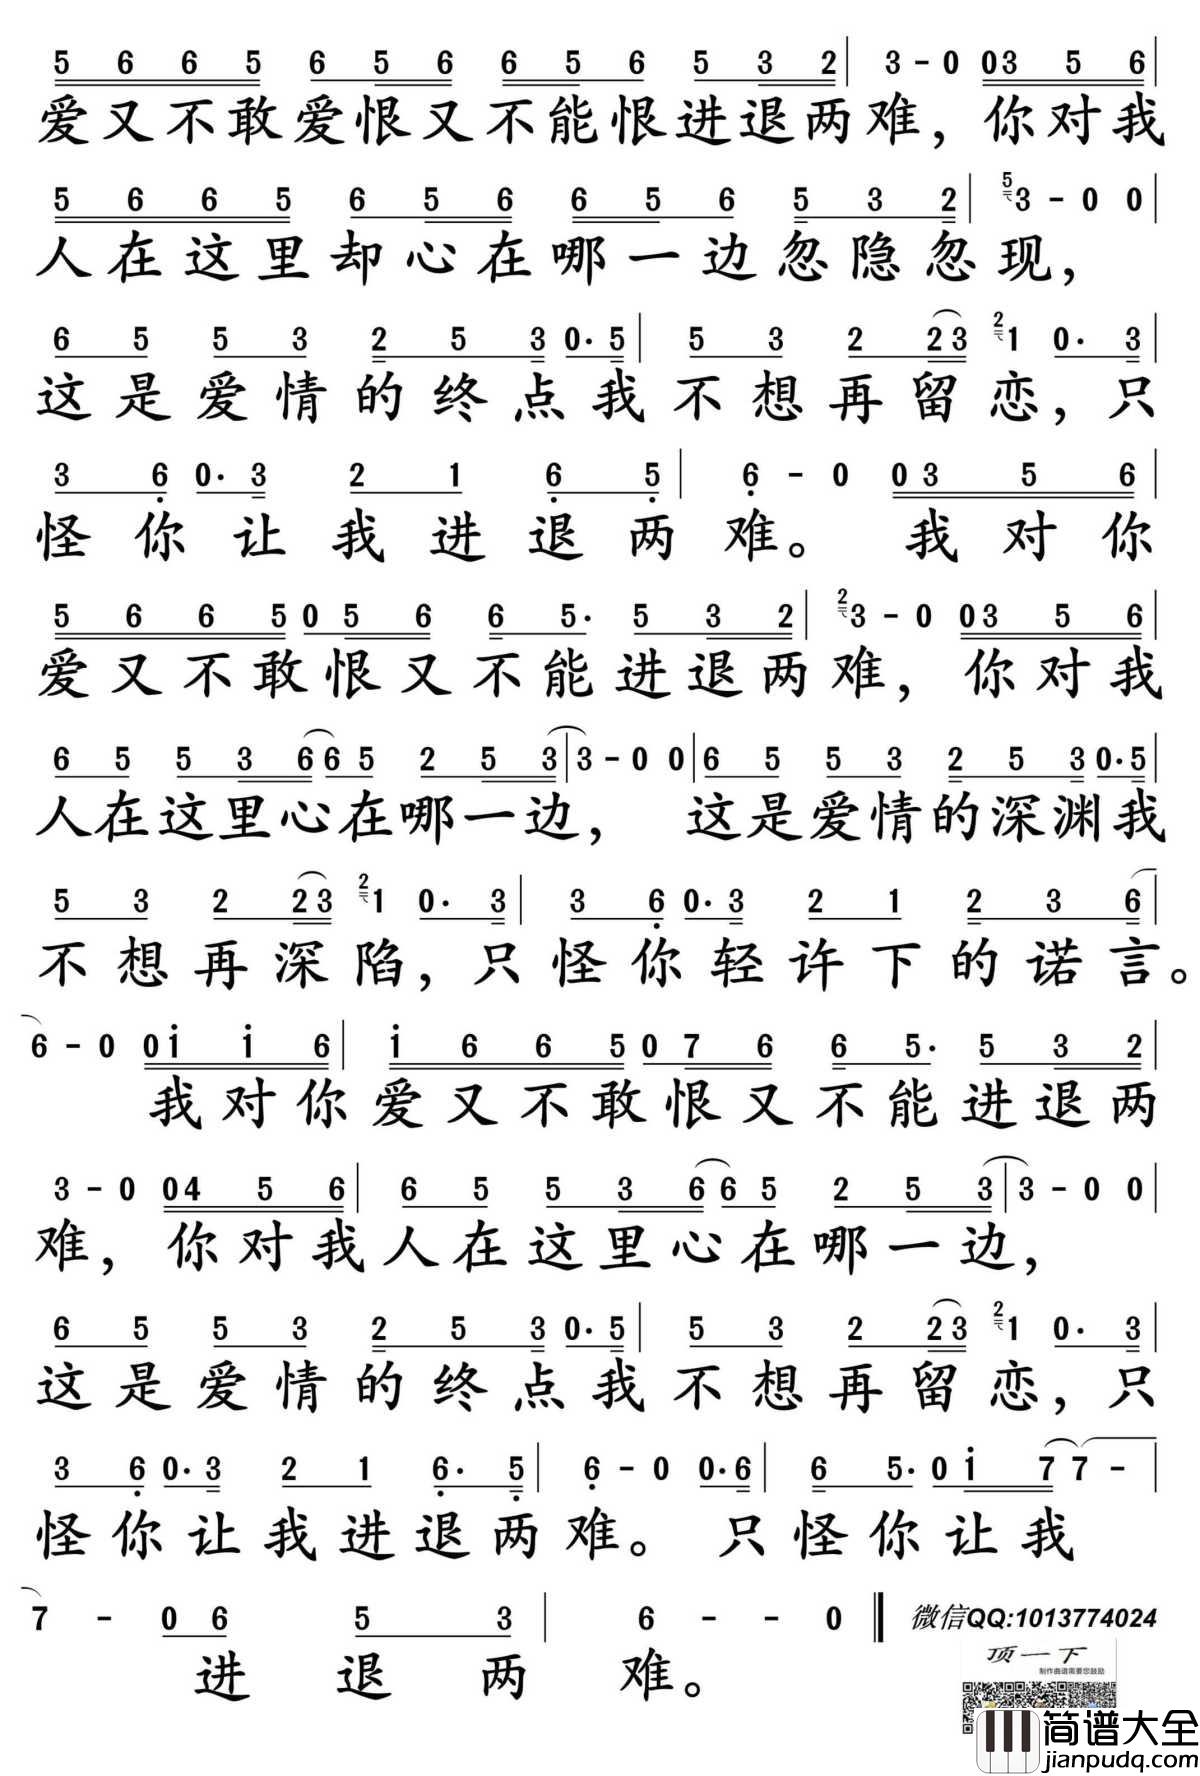 5 6 6 5 6 5 6 6 5 6 5 3 2 | 3 - 0 03 5 6 |
爱又不敢爱恨又不能恨进退两难，你对我
5 6 6 5 6 5 6 6 5 6 5 3 2 | 5 3 - 0 0 |
人在这里却心在哪一边忽隐忽现，
6 5 5 3 2 5 3 0· 5 | 5 3 2 23 2 1 0· 3 |
这是爱情的终点我不想再留恋，只
3 6 0· 3 2 1 6 5 | 6 - 0 03 5 6 |
怪你让我进退两难。我对你
5 6 6 5 0 5 6 6 5· 5 3 2 | 2 3 - 0 03 5 6 |
爱又不敢恨又不能进退两难，你对我
6 5 5 3 6 6 5 2 5 3 | 3 - 0 0 | 6 5 5 3 2 5 3 0· 5 |
人在这里心在哪一边，这是爱情的深渊我
5 3 2 23 2 1 0· 3 | 3 6 0· 3 2 1 2 3 6 |
不想再深陷，只怪你轻许下的诺言。
6 - 0 0i i 6 | i 6 6 5 0 7 6 6 5· 5 3 2 |
我对你爱又不敢恨又不能进退两
3 - 0 04 5 6 | 6 5 5 3 6 6 5 2 5 3 | 3 - 0 0 |
难，你对我人在这里心在哪一边，
6 5 5 3 2 5 3 0· 5 | 5 3 2 23 2 1 0· 3 |
这是爱情的终点我不想再留恋，只
3 6 0· 3 2 1 6· 5 | 6 - 0 0· 6 | 6 5· 0 i 7 7 - |
怪你让我进退两难。只怪你让我
7 - 0 6 5 3 | 6 - - 0 ‖ 微信QQ:1013774024
进退两难。
顶一下
制作曲谱需要您鼓励
简谱大全
jianpudq.com